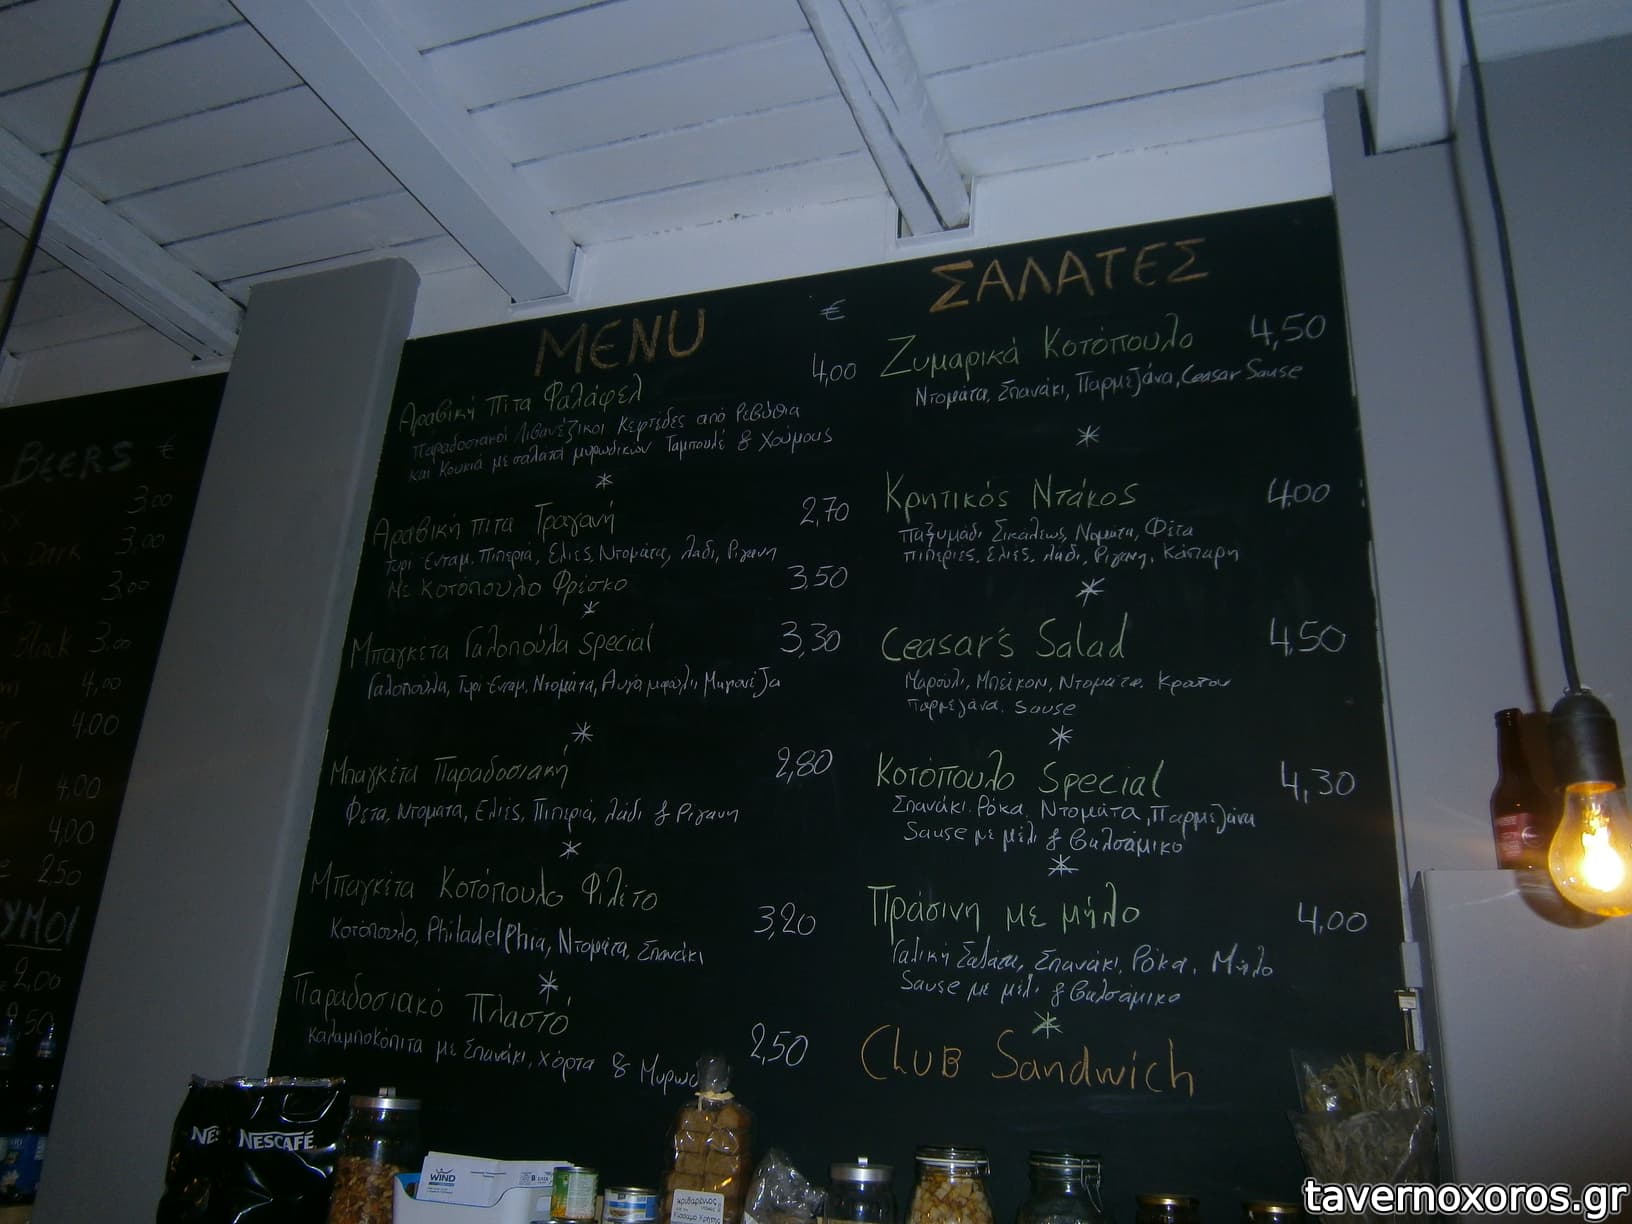 BEERS €
3.00
Dark 3.00
3.00
Black 3.00
4,00
4.00
4.00
4.00
2.50
ΥΜΟΙ
2,00
2,50
MENU €
Αραβική Πίτα Φαλάφελ 4,00
Παραδοσιακοί Λιβανέζικοι Κεφτέδες από Ρεβύθια
και Κουκιά με σαλάτα μυρωδικών Ταμπουλέ & Χούμους
Αραβική πίτα Τραγανή 2,70
Τυρί Ένταμ, Πιπεριά, Ελιές, Ντομάτα, λάδι, Ρίγανη
Με Κοτόπουλο Φρέσκο 3,50
Μπαγκέτα Γαλοπούλα special 3,30
Γαλοπούλα, Τυρί Ένταμ, Ντομάτα, Αυγό, Μαγιονέζα
Μπαγκέτα Παραδοσιακή 2,80
Φέτα, Ντομάτα, Ελιές, Πιπεριά, λάδι & Ρίγανη
Μπαγκέτα Κοτόπουλο Φιλέτο 3,20
Κοτόπουλο, Philadelphia, Ντομάτα, Σπανάκι
Παραδοσιακό Πλαστό 2,50
Καλαμποκόπιτα με Σπανάκι, χόρτα & Μυρω
ΣΑΛΑΤΕΣ
Ζυμαρικά Κοτόπουλο 4,50
Ντομάτα, Σπανάκι, Παρμεζάνα, Ceasar Sause
Κρητικός Ντάκος 4.00
Παξυμάδι Σικάλεως, Ντομάτα, Φέτα
πιπεριές, Ελιές, λάδι, Ρίγανη, Κάπαρη
Ceasar's Salad 4,50
Μαρούλι, Μπέικον, Ντομάτα, Κρουτον
Παρμεζάνα, Sause
Κοτόπουλο Special 4,30
Σπανάκι, Ρόκα, Ντομάτα, Παρμεζάνα
Sause με μέλι & βαλσάμικο
Πράσινη με μήλο 4,00
Γαλική Σαλάτα, Σπανάκι, Ρόκα, Μήλο
Sause με μέλι & βαλσάμικο
Club Sandwich
NESCAFÉ
WIND
tavernoxoros.gr